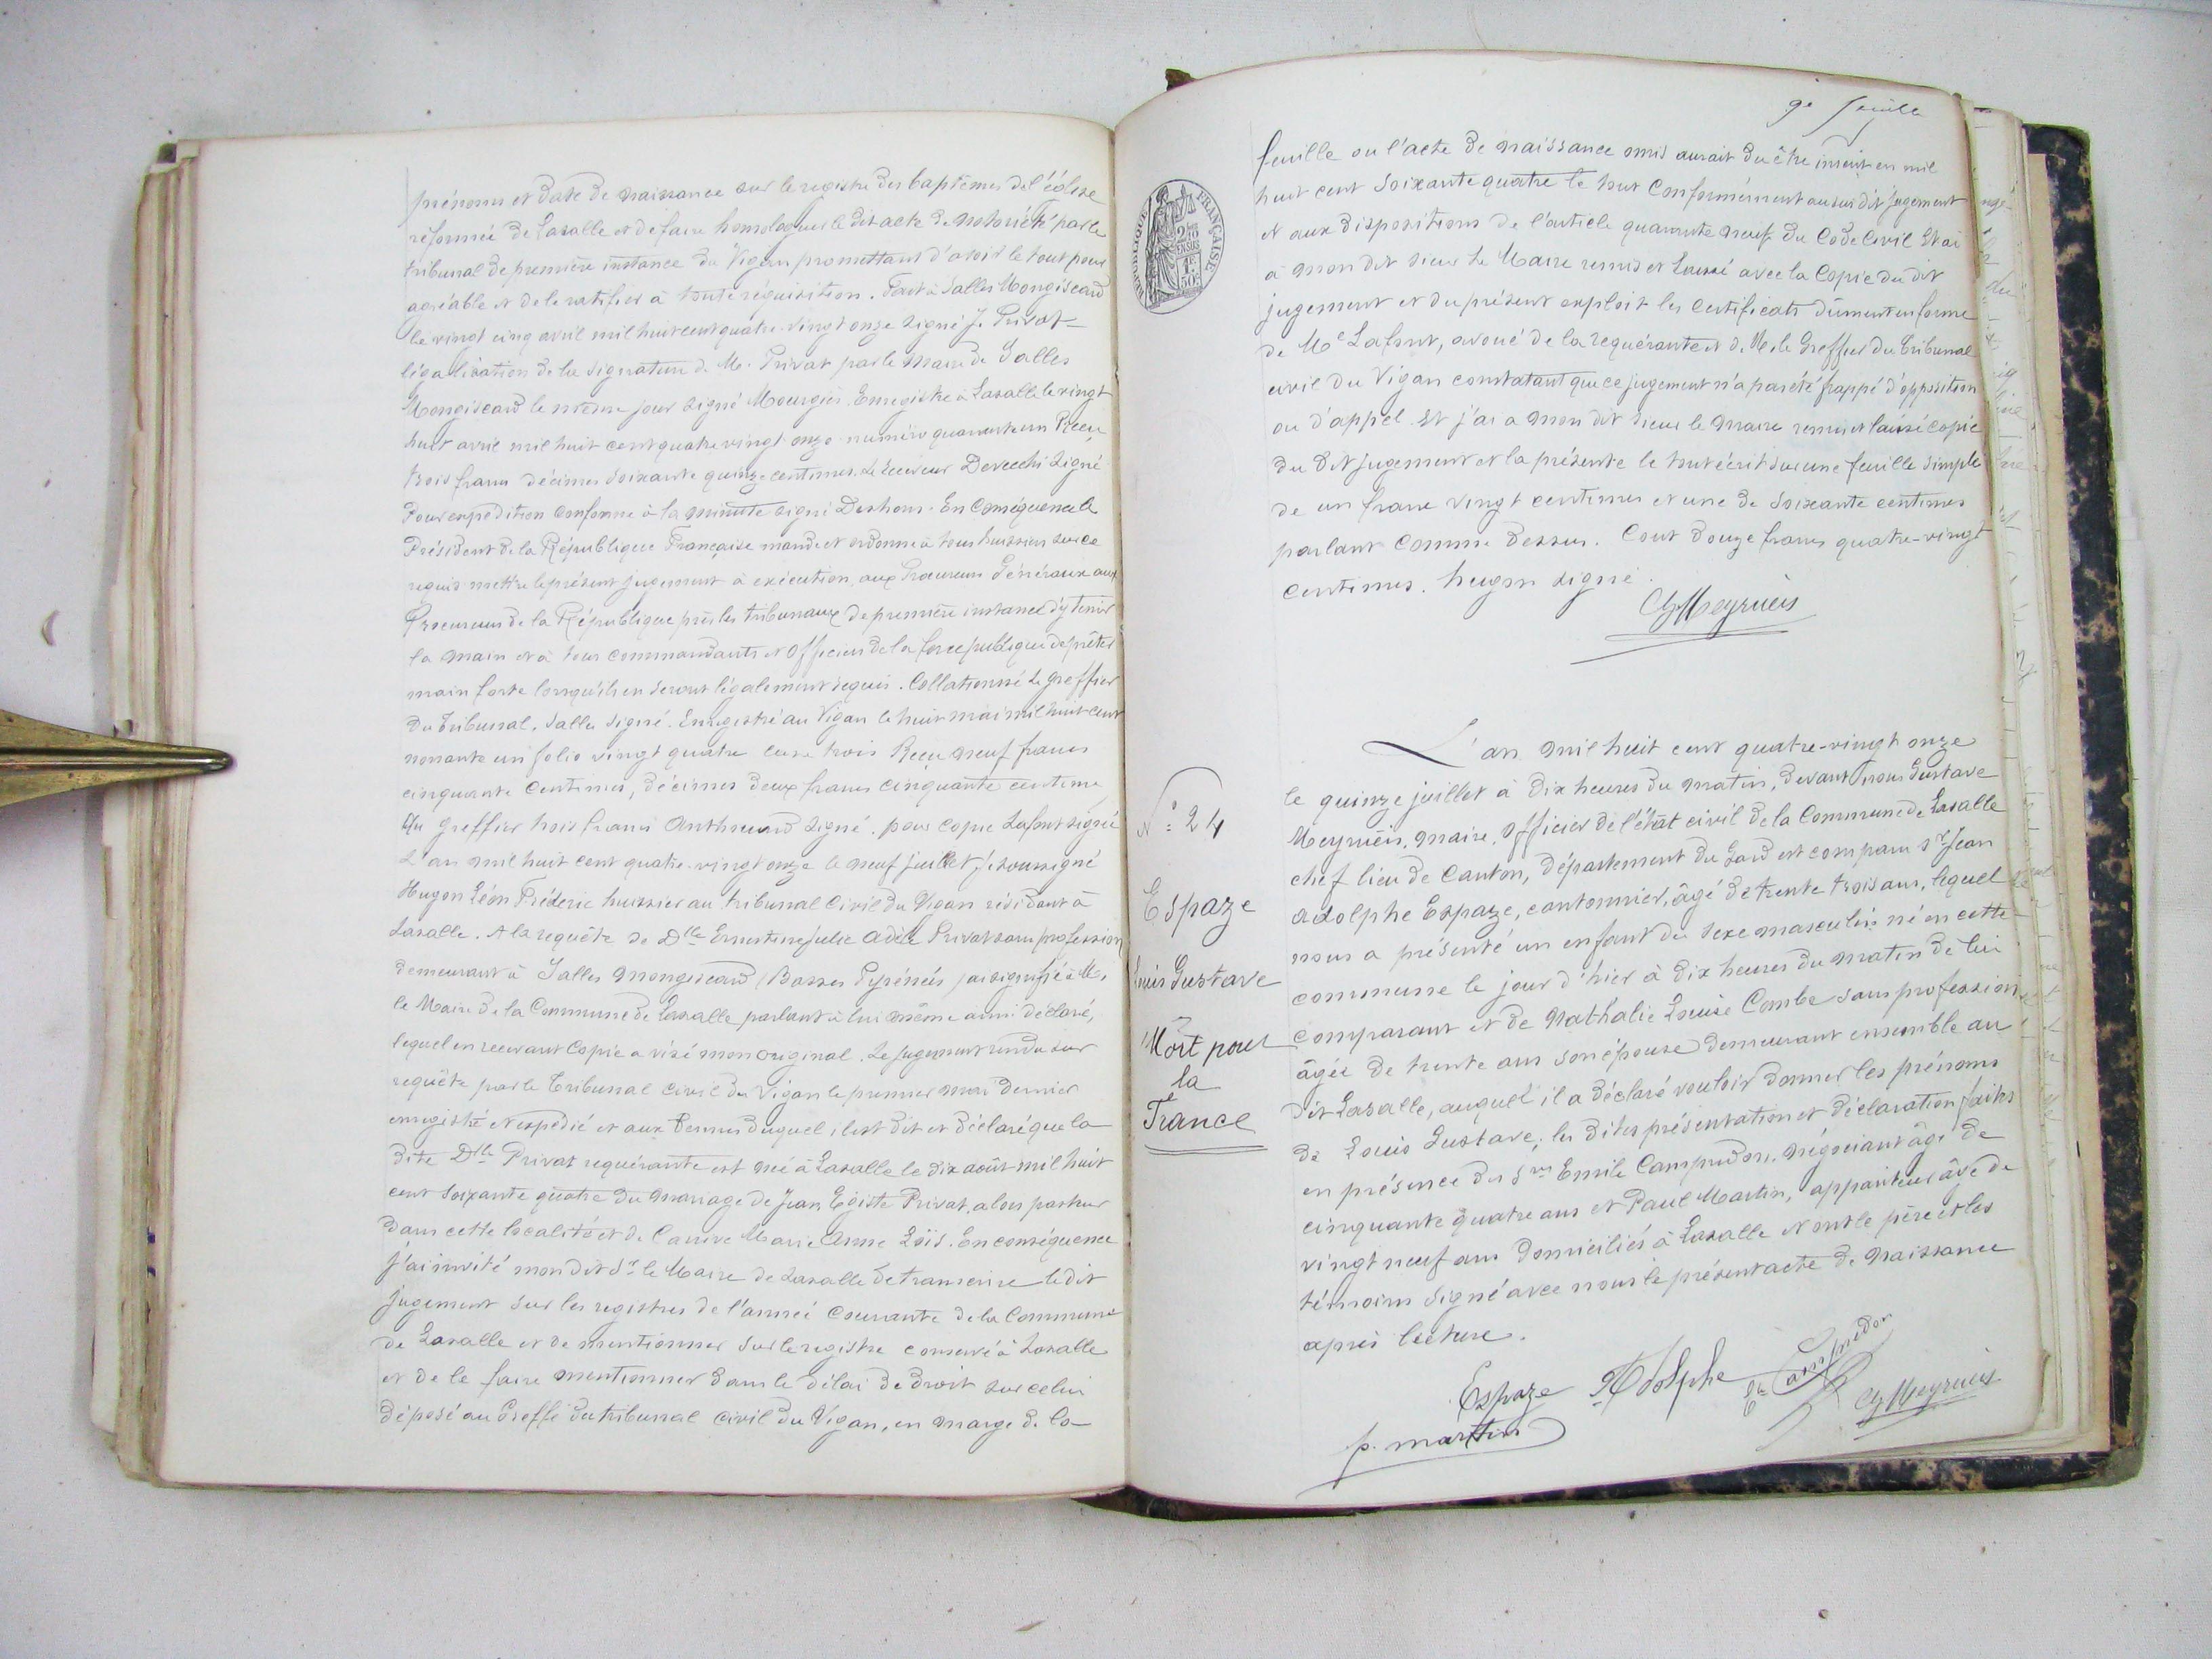 prénoms et date de naissance sur le registre des baptêmes de l'église
réformée de Lasalle et de faire homologuer le dit acte de notoriété par le
tribunal de première instance du Vigan promettant d'avoir le tout pour
agréable et de le ratifier à toute réquisition. Fait à Salles Mongiscard
le vingt cinq avril mil huit cent quatre-vingt onze signé J. Privat
légalisation de la signature de M. Privat par le Maire de Salles
Mongiscard le même jour signé Mourgués. Enregistré à Lasalle le vingt
huit avril mil huit cent quatre vingt onze numéro quarante un Reçu
trois francs décimes soixante quinze centimes. Le Receveur Devecchi signé
Pour expédition conforme à la minute signé Deshons. En conséquence le
Président de la République Française mande et ordonne à tous huissiers sur ce
requis mettre le présent jugement à exécution, aux Procureurs Généraux aux
Procureurs de la République près les tribunaux de première instance d'y tenir
la main et à tous commandants et officiers de la force publique de prêter
main forte lorsqu'ils en seront légalement requis. Collationné Le greffier
du tribunal. Salles signé. Enregistré au Vigan le huit mai mil huit cent
nonante un folio vingt quatre case trois Reçu neuf francs
cinquante centimes, décimes deux francs cinquante centimes
Au Greffier trois francs signé. pour copie Lafont signé
L'an mil huit cent quatre-vingt onze le neuf juillet Je soussigné
Hugon Léon Fréderic huissier au tribunal Civil du Vigan résidant à
Lasalle. A la requête de Dlle Ernestine Julie Adèle Privat sans profession
demeurant à Salles Mongiscard (Basses Pyrénées) ai signifié à M.
le Maire de la Commune de Lasalle parlant à lui même ainsi déclaré,
lequel en recevant Copie a visé mon original. Le Jugement rendu sur
requête par le Tribunal civil du Vigan le premier mai dernier
enregistré et expédié et aux termes duquel, il est dit et déclaré que la
dite Dlle Privat requérante est née à Lasalle le dix août mil huit
cent soixante quatre du mariage de Jean Egiste Privat, alors pasteur
dans cette localité et de Marie Anne Loïs. En conséquence
j'ai invité mon dit Sr le Maire de Lasalle de transcrire le dit
jugement sur les registres de l'année Courante de la Commune
de Lasalle et de mentionner sur le registre conservé à Lasalle
et de le faire mentionner dans le délai de droit sur celui
déposé au Greffe du tribunal civil du Vigan, en marge de la
9e feuille
feuille ou l'acte de naissance omis aurait du être inscrit en mil
huit cent soixante quatre le tout Conformément au sus dit jugement
et aux dispositions de l'article quarante neuf du Code Civil Et ai
à mon dit sieur Le Maire remis et laissé avec la Copie du dit
jugement et du présent exploit les certificats dûment en forme
de Me Lafont, avoué de la requérante et de M. le Greffier du tribunal
civil du Vigan constatant que ce jugement n'a pas été frappé d'opposition
ou d'appel. Et j'ai à mon dit sieur le Maire remis et laissé copie
du dit jugement et la présente le tout écrit sur une feuille simple
de un franc vingt centimes et une de soixante centimes
parlant Comme dessus. Cout douze francs quatre-vingt
centimes. hugon signé.
Meyrueis
REPUBLIQUE FRANÇAISE
L'an mil huit cent quatre-vingt onze
le quinze juillet à dix heures du matin, devant nous Gustave
Meyrueis, maire, officier de l'état civil de la Commune de Lasalle
chef lieu de Canton, département du Gard est comparu sr Jean
Adolphe Espaze, cantonnier, âgé de trente trois ans, lequel
nous a présenté un enfant du sexe masculin né en cette
commune le jour d'hier à dix heures du matin de lui
comparant et de Nathalie Louise Combe sans profession
âgée de trente ans son épouse demeurant ensemble au
dit Lasalle, auquel il a déclaré vouloir donner les prénoms
de Louis Gustave; les dites présentation et déclaration faites
en présence des srs Emile Campredon, négociant âgé de
cinquante quatre ans et Paul Martin, appariteur âgé de
vingt neuf ans domiciliés à Lasalle et ont le père et les
témoins signé avec nous le présent acte de naissance
après lecture.
N° 24
Espaze
Louis Gustave
Mort pour
la
France
Espaze Adolphe Campredon
Meyrueis
p. martin